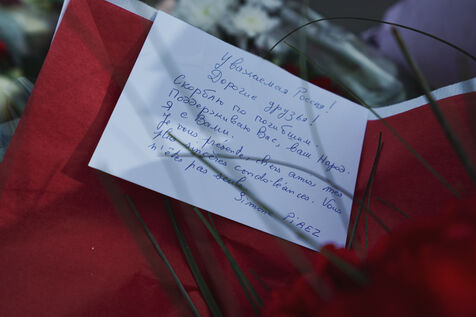 Уважаемая Россия!
Дорогие друзья!
Скорблю по погибшим.
Поддерживаю Вас, ваш Народ.
Я с Вами.
Je vous présente, chers amis, mes
plus sincères condoléances. Vous
n'êtes pas seuls.
Simone